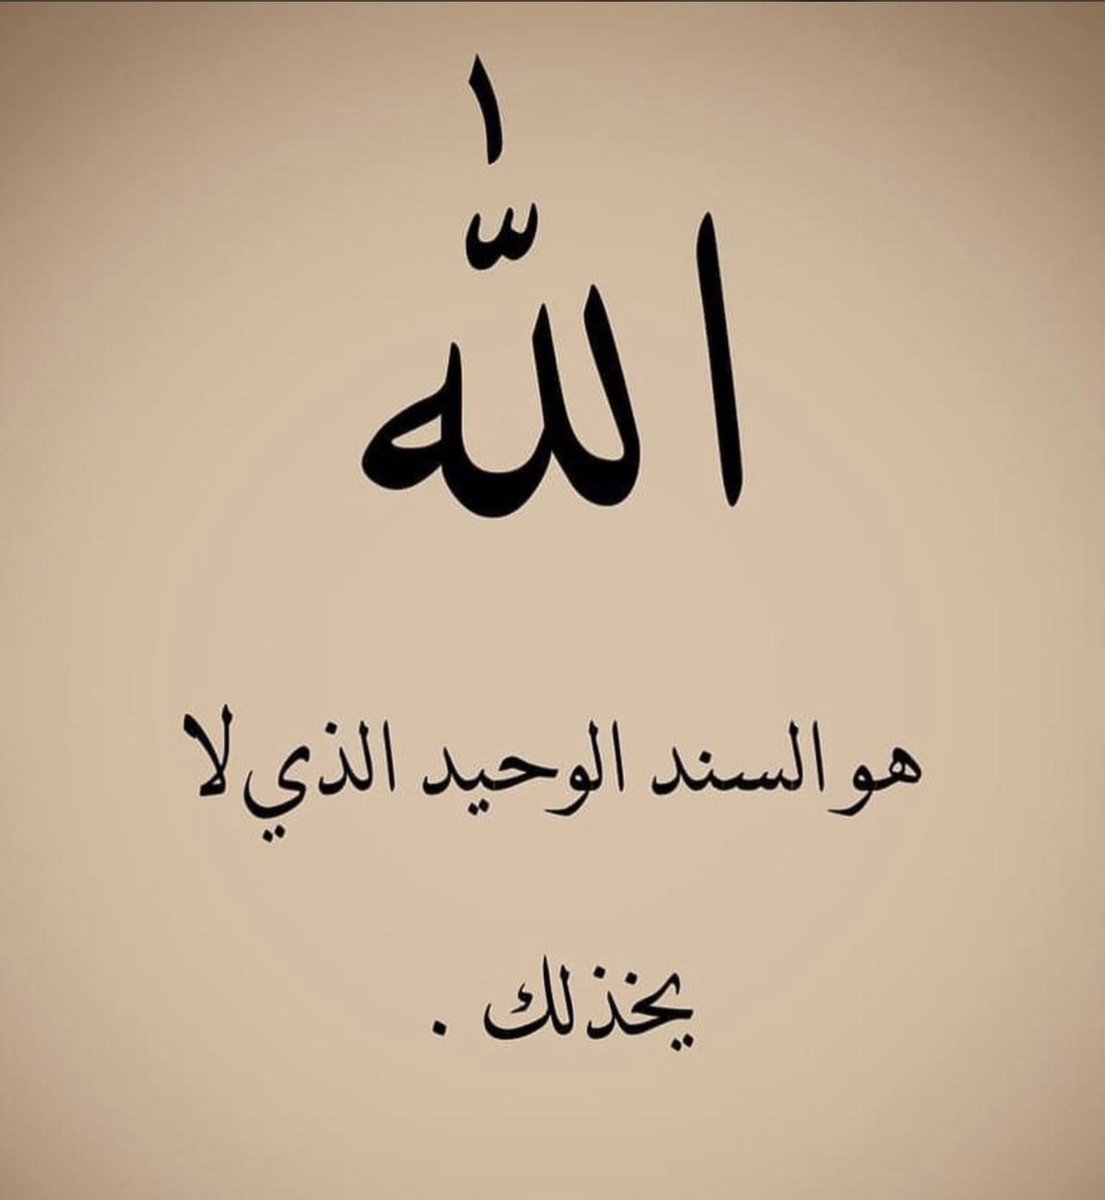 اللّٰه
هو السند الوحيد الذي لا
يخذلك .